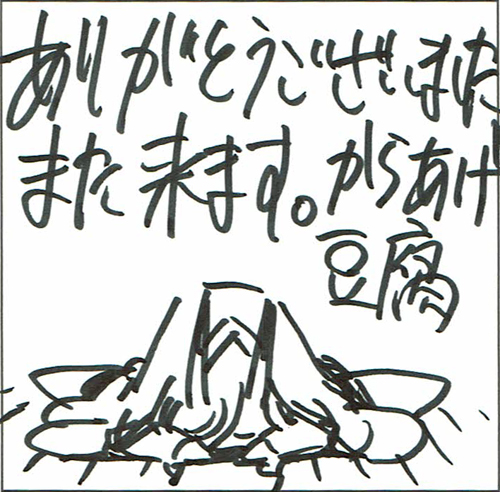 ありがとうございました
また来ます。からあげ
豆腐